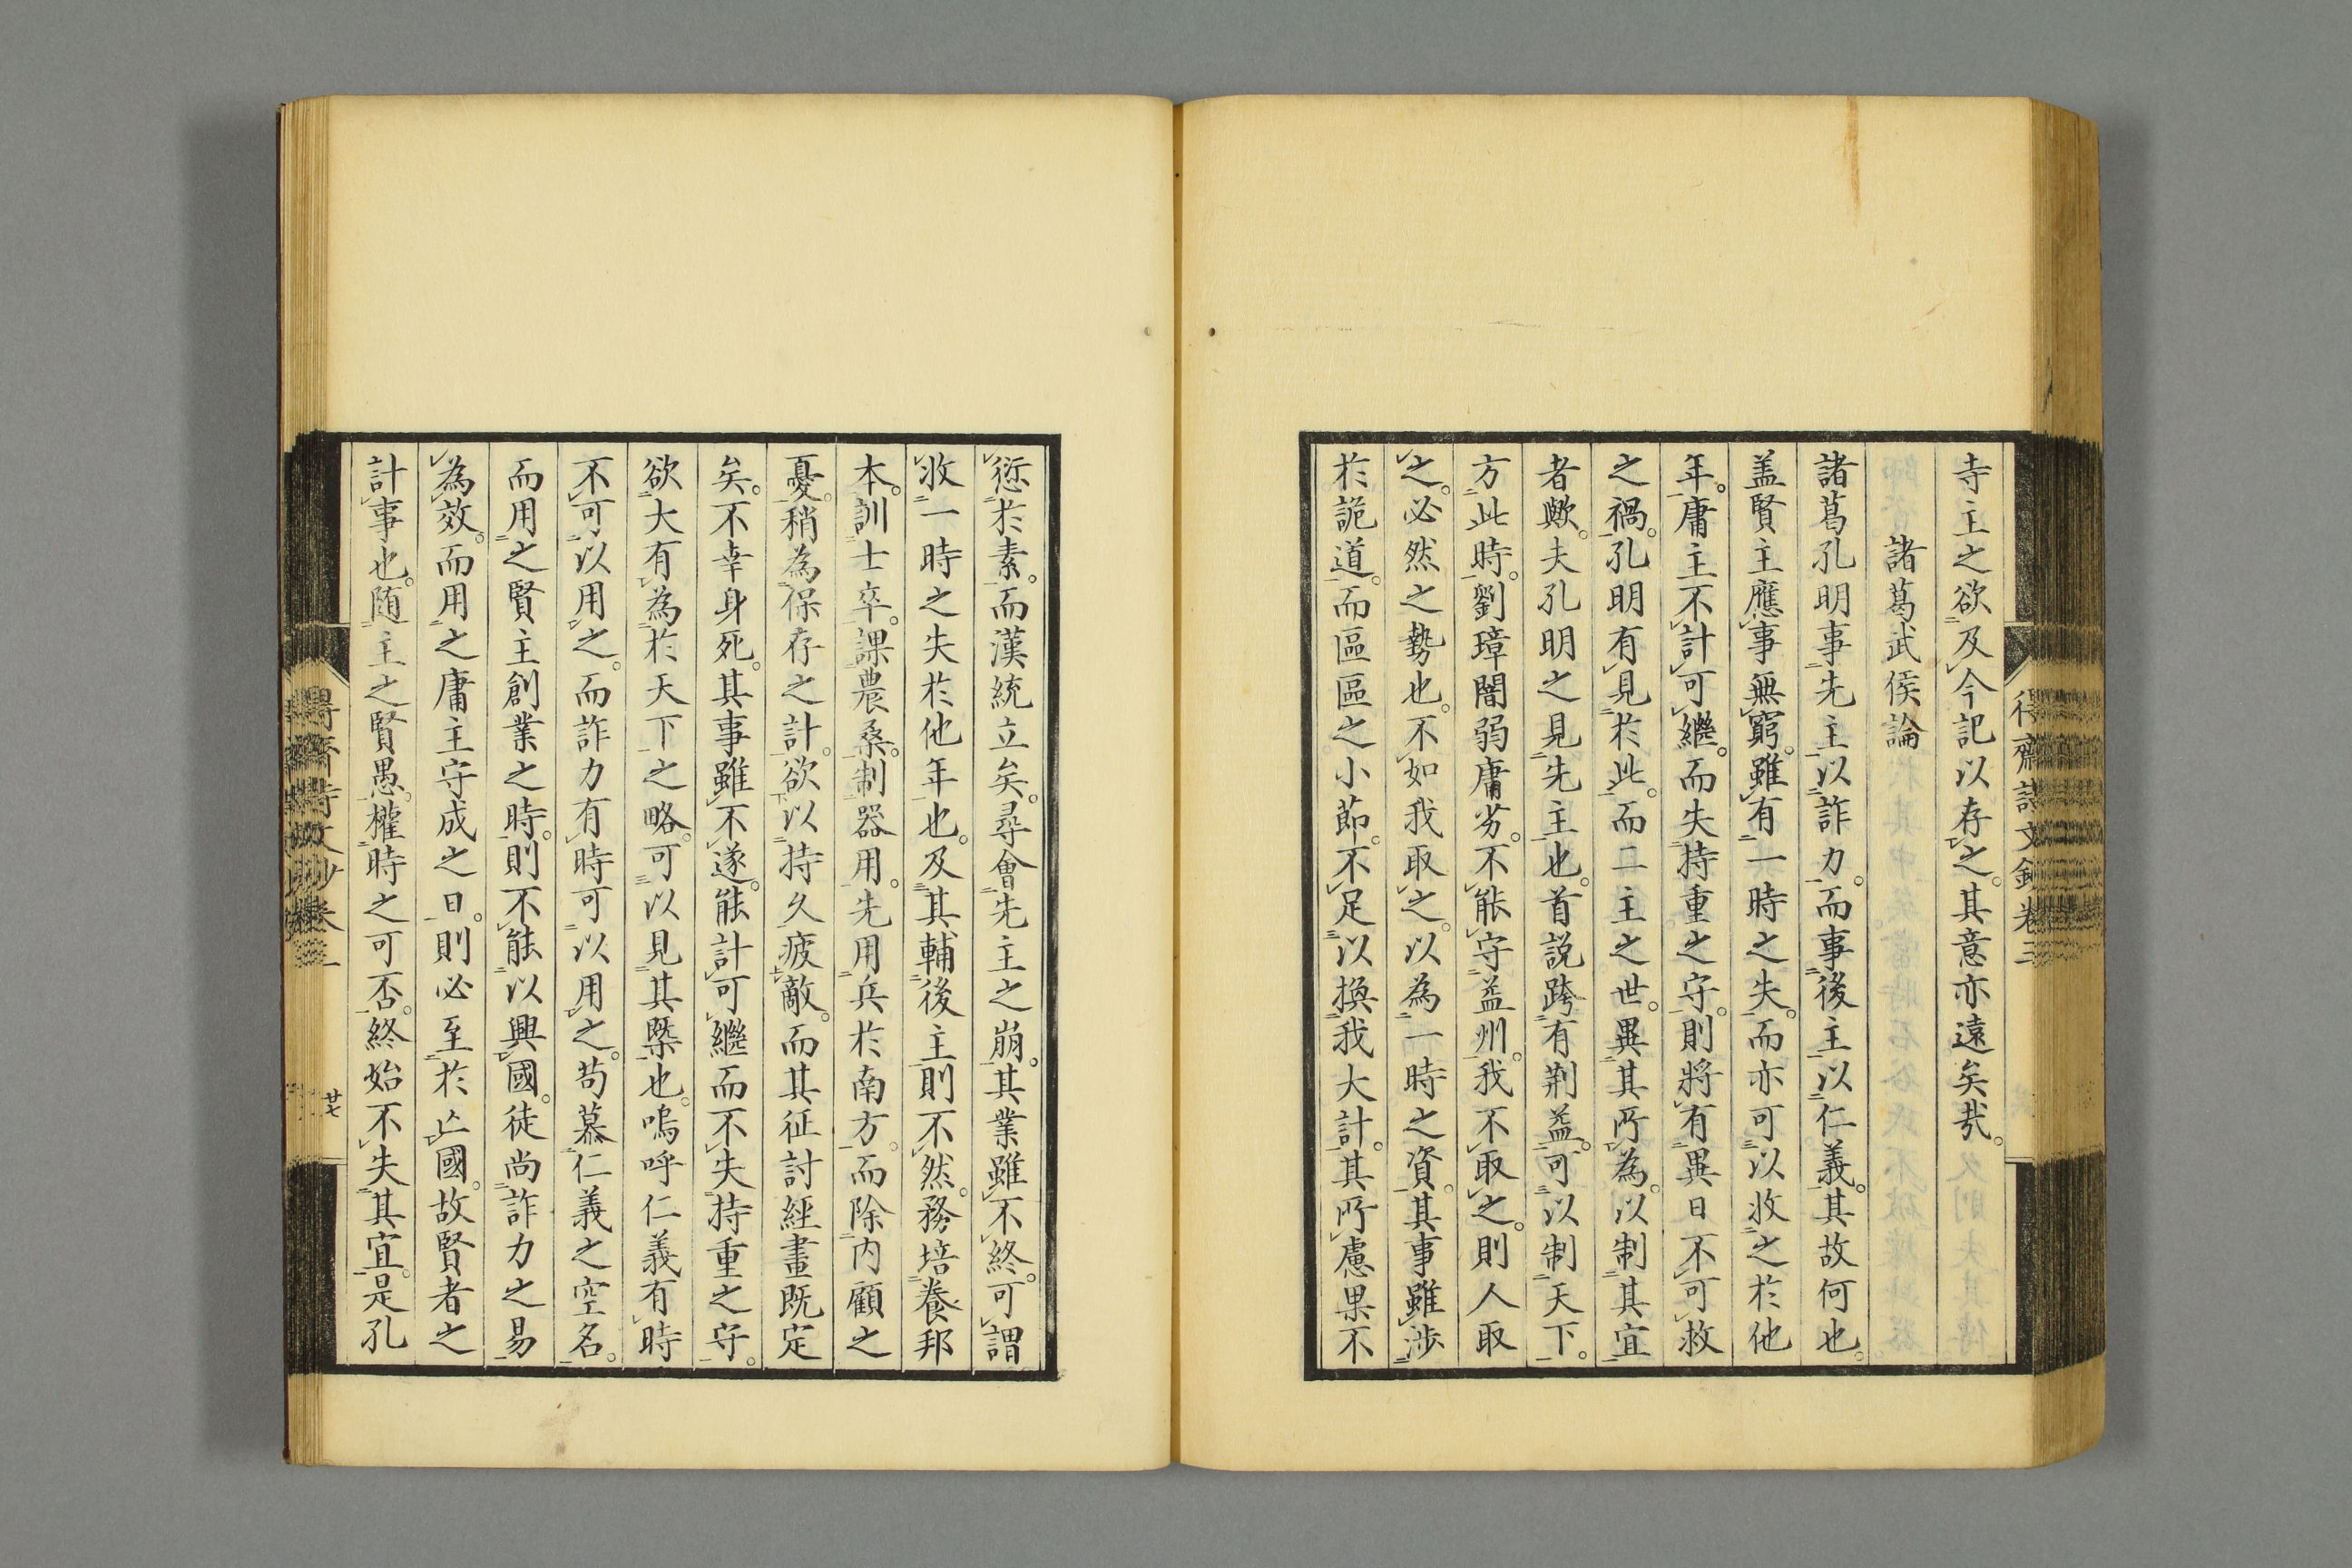 寺主之欲及今記以存之。其意亦遠矣哉。
諸葛武侯論
諸葛孔明事先主以詐力。而事後主以仁義。其故何也。
盖賢主應事無窮。雖有一時之失。而亦可以收之於他
年。庸主不計可繼。而失持重之守。則將有異日不可救
之禍。孔明有見於此。而二主之世。異其所為。以制其宜
者歟。夫孔明之見先主也。首説跨有荆益。可以制天下。
方此時。劉璋闇弱庸劣。不能守益州。我不取之。則人取
之。必然之勢也。不如我取之。以為一時之資。其事雖渉
於詭道。而區區之小莭。不足以換我大計。其所慮果不
愆於素。而漢統立矣。尋會先主之崩。其業雖不終。可謂
收一時之失於他年也。及其輔後主則不然。務培養邦
本。訓士卒。課農桑。制器用。先用兵於南方。而除内顧之
憂。稍為保存之計。欲以持久疲敵。而其征討經畫既定
矣。不幸身死。其事雖不遂。能計可繼而不失持重之守。
欲大有為於天下之略。可以見其槩也。嗚呼仁義有時
不可以用之。而詐力有時可以用之。苟慕仁義之空名。
而用之賢主創業之時。則不能以興國。徒尚詐力之易
為效。而用之庸主守成之日。則必至於亾國。故賢者之
計事也。随主之賢愚。權時之可否。終始不失其宜。是孔
廿七